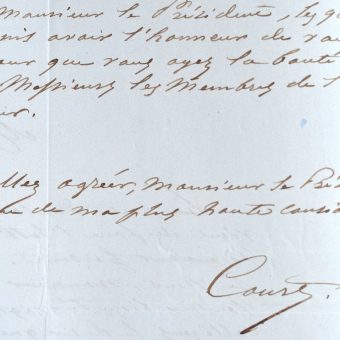 Monsieur le Président, les
avoir l'honneur de
que vous ayez la bonté
Messieurs les Membres de l
agréer, Monsieur le Prés
de ma plus haute consid